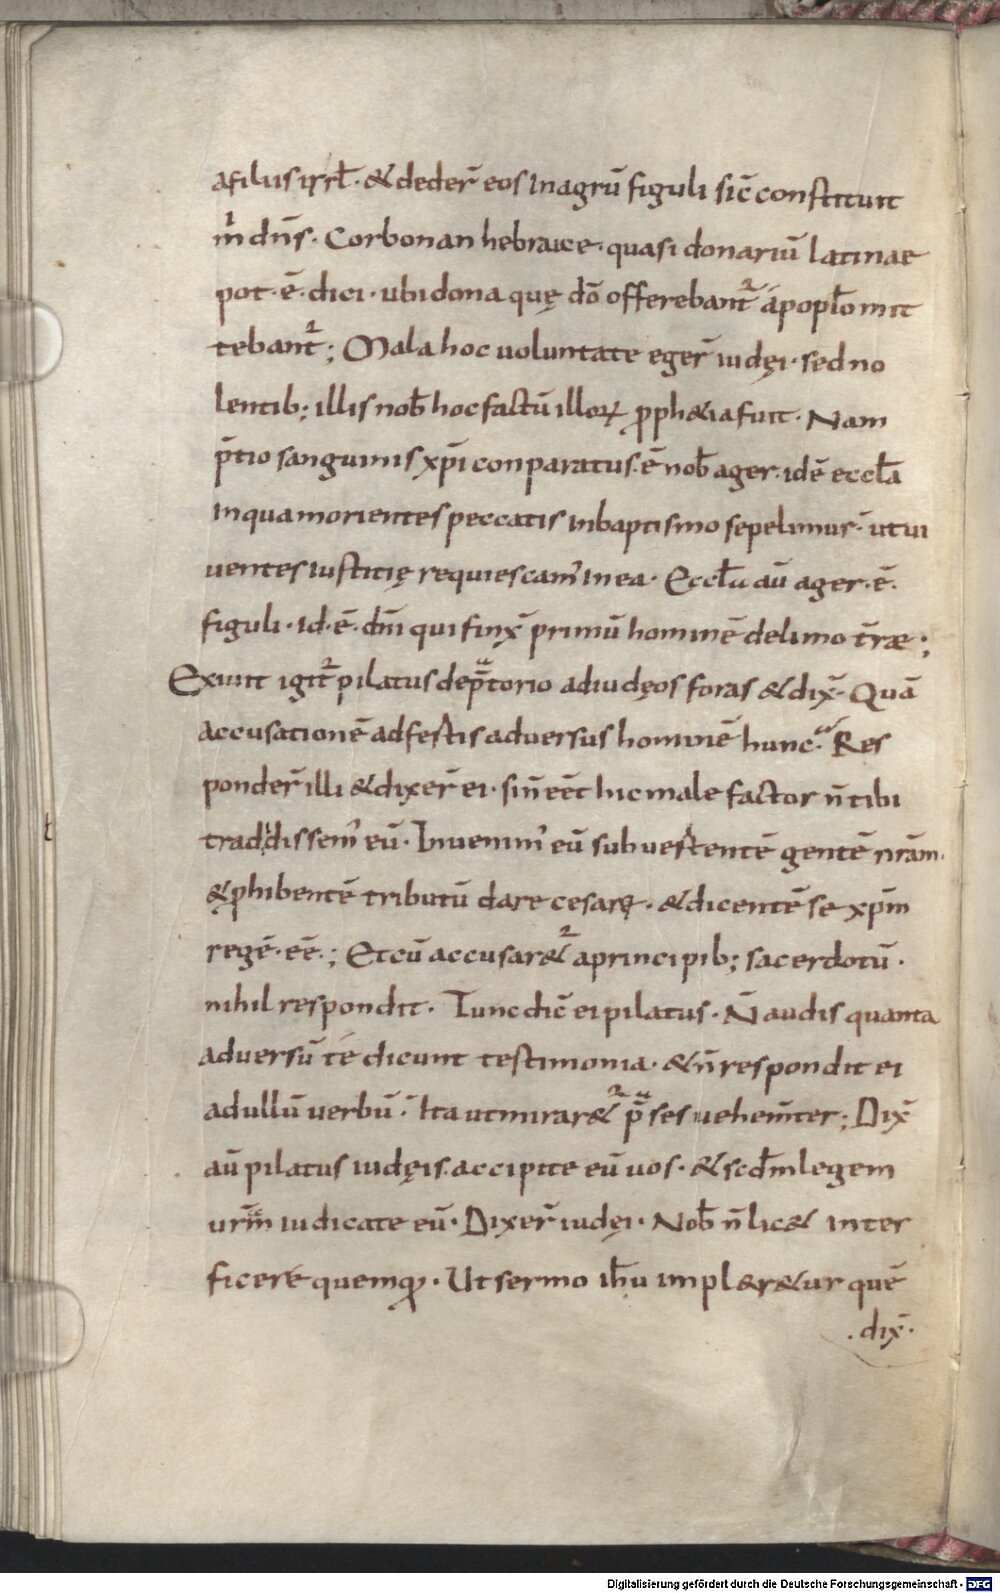 afiliis isrl̄. & deder̄ eos in agrū figuli sic̄ constituit
m̄ dn̄s. Corbonan hebraice. quasi donariū latinae
pot. ē. dici. ubi dona quę dō offerebant̄ a popl̄o mit
tebant̄; Mala hoc uoluntate eger̄ iudęi. sed no
lentib; illis nob̄ hoc factū illoꝝ ꝓph&ia fuit. Nam
p̄tio sanguinis xp̄i conparatus. ē nob̄ ager. id ē eccl̄a
in qua morientes peccatis in baptismo sepelimur. ut ui
uentes iustitię requiescam' in ea. Eccl̄a aū ager. ē.
figuli. id. ē. dn̄i qui finx̄ primū hominē de limo t̄rae;
Exiuit igit̄ pilatus de p̄torio ad iudęos foras & dix̄. Quā
accusationē adfestis adversus hominē hunc. Res
ponder̄ illi & dixer̄ ei. si n̄ eēt hic malefactor n̄ tibi
tradidissem' eū. Inuenim' eū subuertentē gentē nr̄am.
& ꝓhibentē tributū dare cesarę. & dicentē se xp̄m
regē. eē.; Et cū accusar& a principib; sacerdotū.
nihil respondit. Tunc dic̄ ei pilatus. N̄ audis quanta
adversū te dicunt testimonia. & n̄ respondit ei
ad ullū uerbū. Ita ut mirar& p̄ses uehem̄ter; Dix̄
aū pilatus iudęis. accipite eū uos. & scd̄m legem
urm̄ iudicate eū. Dixer̄ iudęi. Nob̄ n̄ lic& inter
ficere quemꝗ. Ut sermo ih̄u impl&r&ur quē
. dix̄.
Digitalisierung gefördert durch die Deutsche Forschungsgemeinschaft - DFG